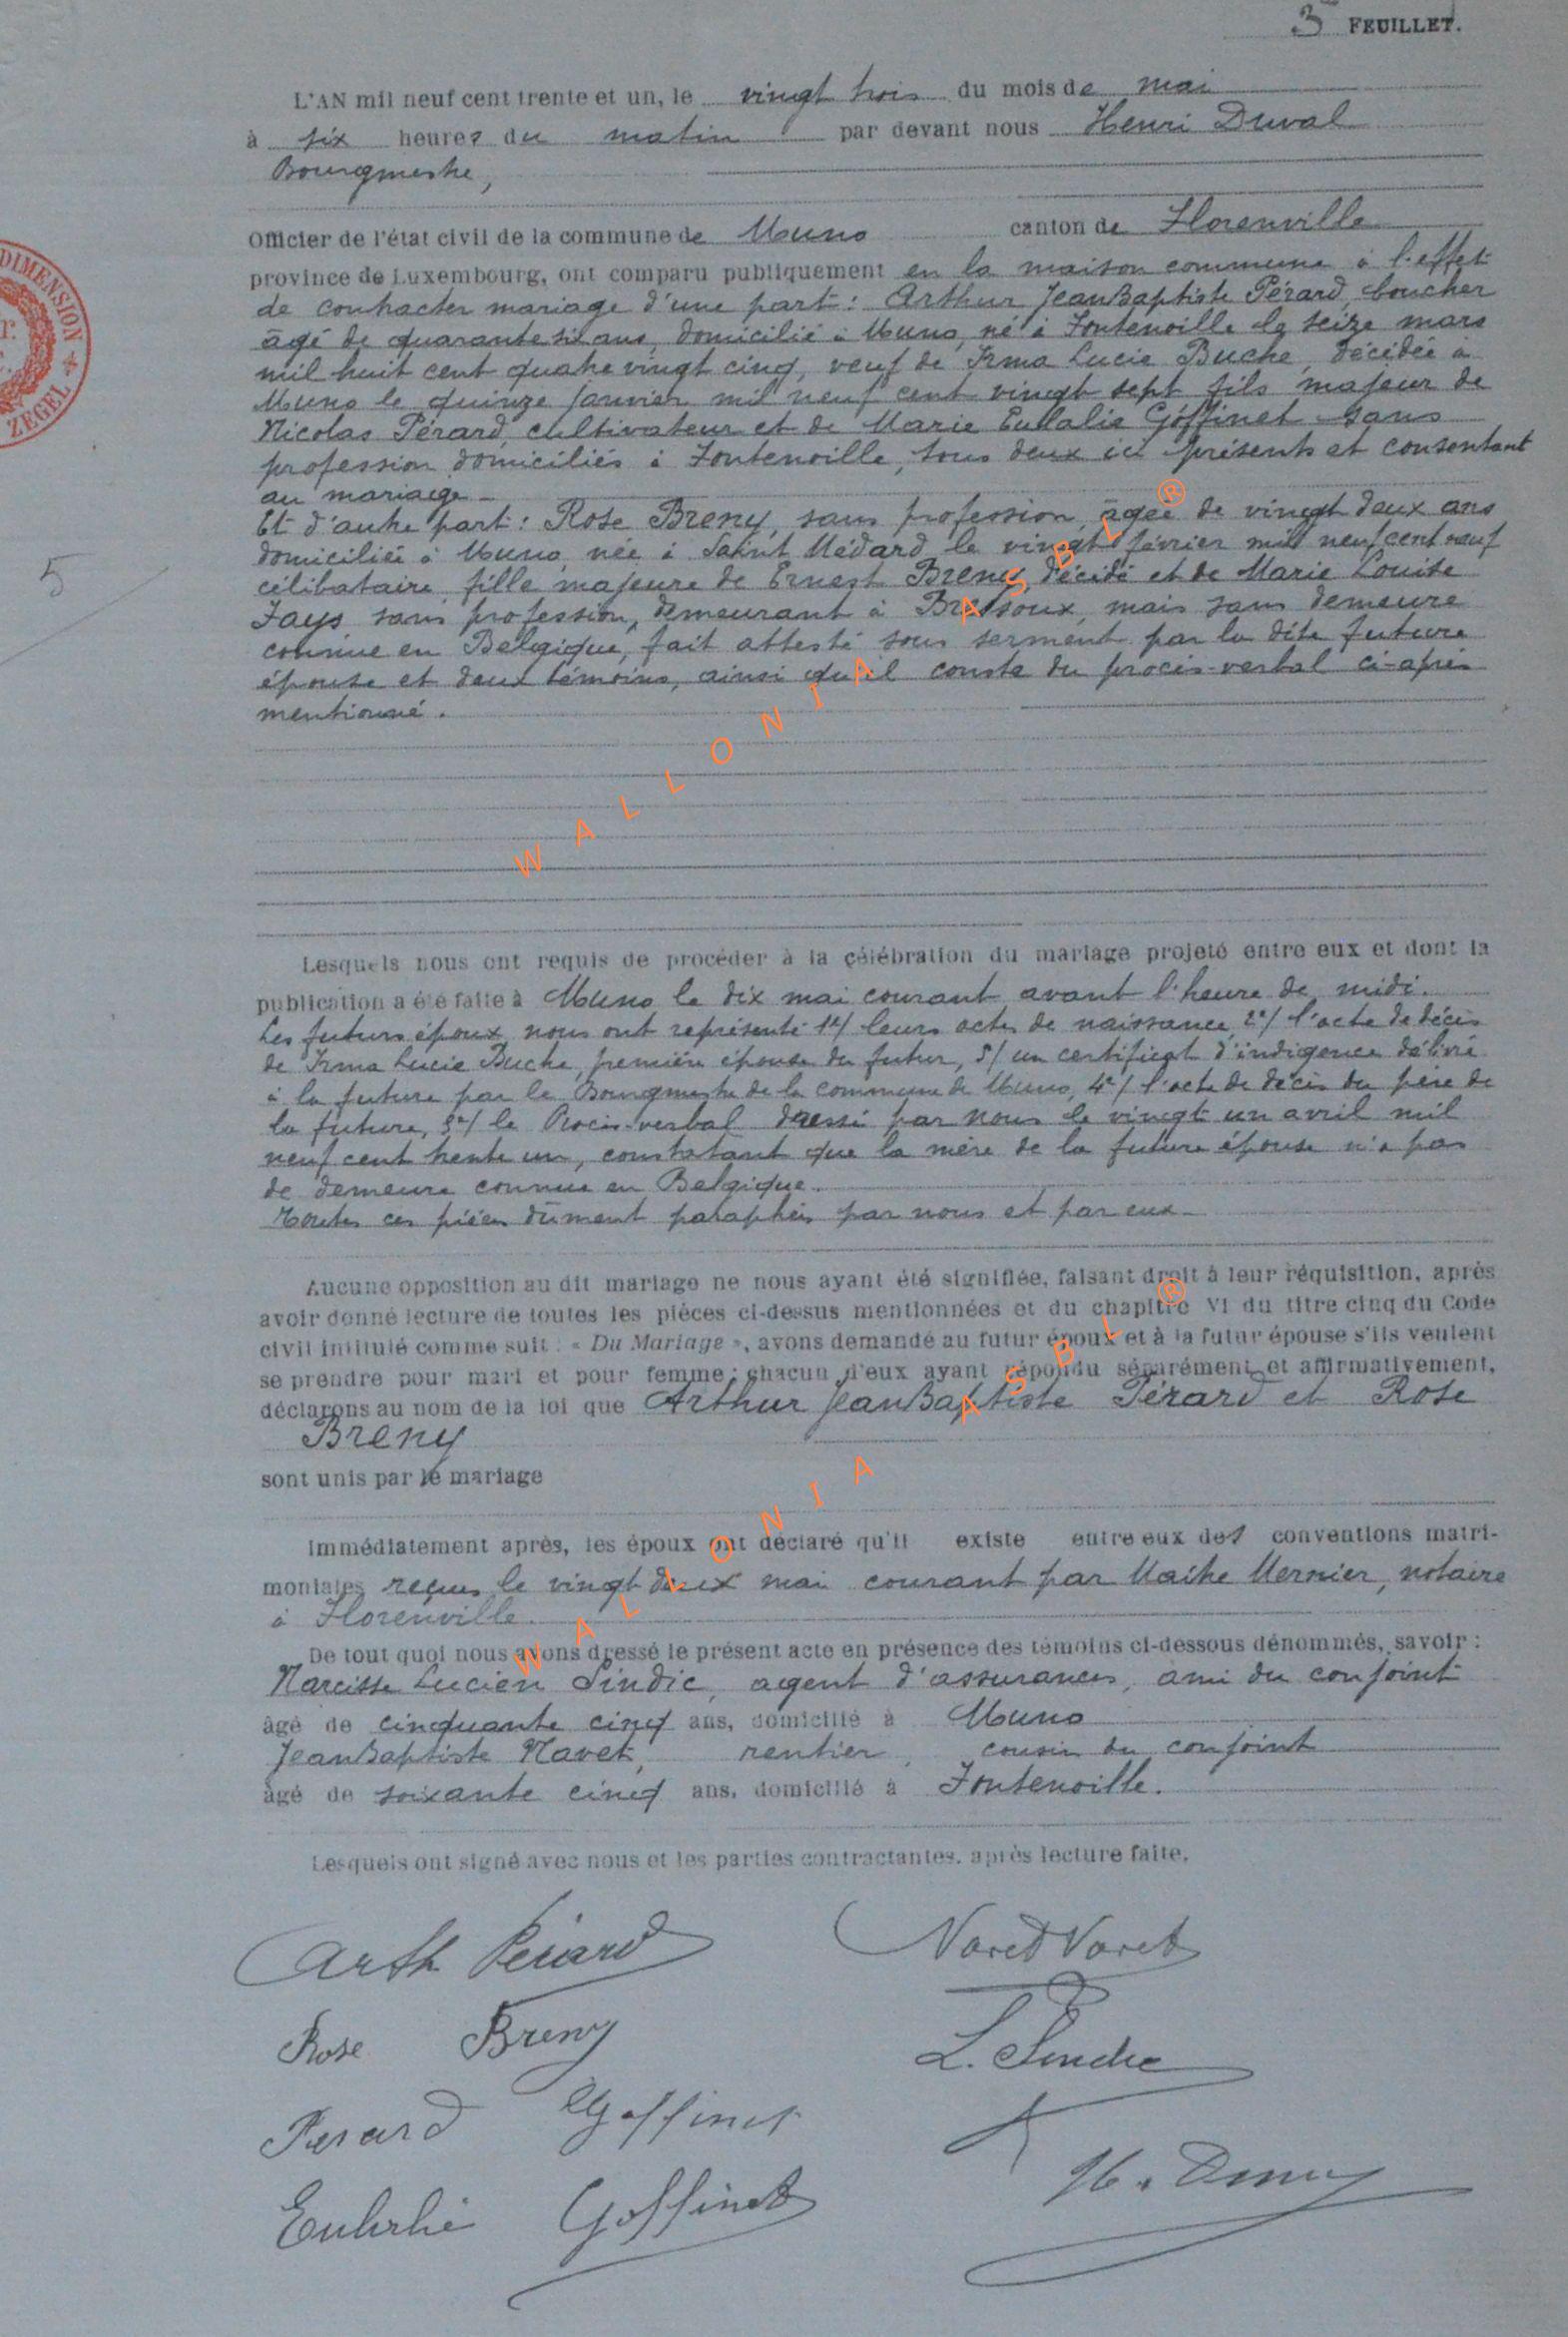 3 FEUILLET.
L'AN mil neuf cent trente et un, le vingt trois du mois de mai
à six heures du matin par devant nous Henri Duval
Bourgmestre,
Officier de l'état civil de la commune de Muno canton de Florenville
province de Luxembourg, ont comparu publiquement en la maison commune à l'effet
de contracter mariage d'une part : Arthur Jean Baptiste Pérard, boucher
âgé de quarante six ans, domicilié à Muno, né à Fontenoille le seize mars
mil huit cent quatre vingt cinq, veuf de Irma Lucie Buche, décédée à
Muno le quinze janvier mil neuf cent vingt sept fils majeur de
Nicolas Pérard, cultivateur et de Marie Eulalie Goffinet sans
profession domiciliés à Fontenoille, tous deux ici présents et consentant
au mariage -
Et d'autre part : Rose Breny, sans profession, âgée de vingt deux ans
domiciliée à Muno, née à Saint Médard le vingt février mil neuf cent neuf
célibataire, fille majeure de Ernest Breny décédé et de Marie Louise
Fays sans profession, demeurant à Bressoux, mais sans demeure
connue en Belgique, fait attesté sous serment par la dite future
épouse et deux témoins, ainsi qu'il conste du procès-verbal ci-après
mentionné.
5
DIMENSION
ZEGEL
WALLONIA ASBL ®
Lesquels nous ont requis de procéder à la célébration du mariage projeté entre eux et dont la
publication a été faite à Muno le dix mai courant avant l'heure de midi.
Les futurs époux nous ont représenté 1e/ leurs actes de naissance, 2e/ l'acte de décès
de Irma Lucie Buche, première épouse du futur, 3/ un certificat d'indigence délivré
à la future par le Bourgmestre de la commune de Muno, 4e/ l'acte de décès du père de
la future, 5e/ le Procès-verbal dressé par nous le vingt un avril mil
neuf cent trente un, constatant que la mère de la future épouse n'a pas
de demeure connue en Belgique.
Toutes ces pièces dûment paraphées par nous et par eux -
Aucune opposition au dit mariage ne nous ayant été signifiée, faisant droit à leur réquisition, après
avoir donné lecture de toutes les pièces ci-dessus mentionnées et du chapitre VI du titre cinq du Code
civil intitulé comme suit : « Du Mariage », avons demandé au futur époux et à la futur épouse s'ils veulent
se prendre pour mari et pour femme ; chacun d'eux ayant répondu séparément et affirmativement,
déclarons au nom de la loi que Arthur Jean Baptiste Pérard et Rose
Breny
sont unis par le mariage
Immédiatement après, les époux ont déclaré qu'il existe entre eux des conventions matri-
moniales reçues le vingt deux mai courant par Maître Mernier, notaire
à Florenville.
WALLONIA ASBL ®
De tout quoi nous avons dressé le présent acte en présence des témoins ci-dessous dénommés, savoir :
Narcisse Lucien Sindic, agent d'assurances, ami du conjoint
âgé de cinquante cinq ans, domicilié à Muno
Jean Baptiste Navet, rentier, cousin du conjoint
âgé de soixante cinq ans, domicilié à Fontenoille.
Lesquels ont signé avec nous et les parties contractantes, après lecture faite.
Arth Pérard
Rose Breny
L. Sindic
Perard Goffinet
Eulalie Goffinet